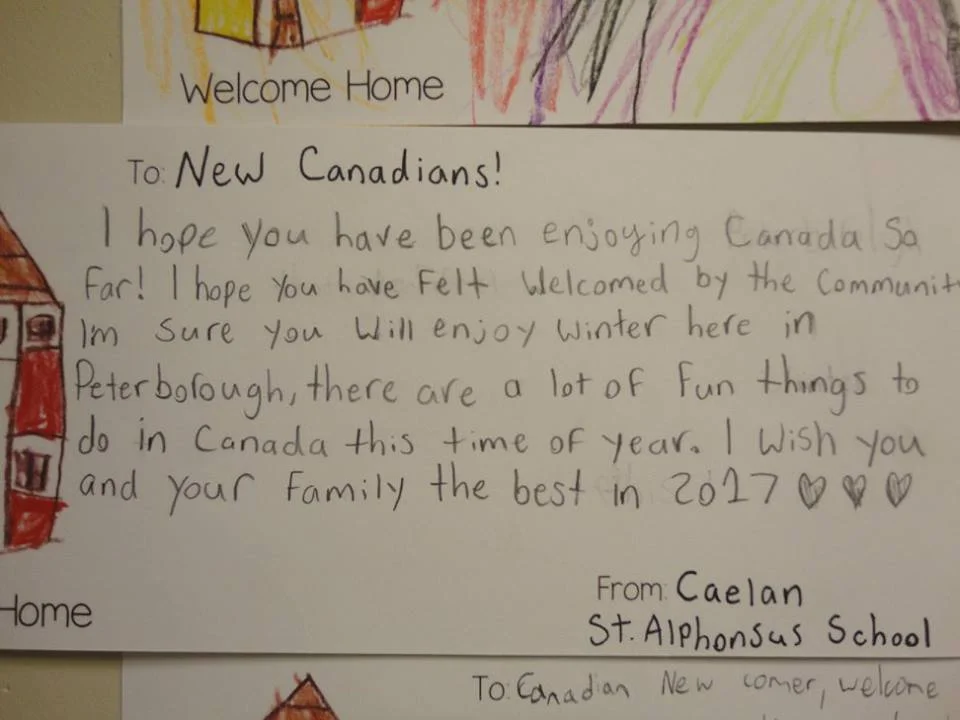 Welcome Home
To: New Canadians!
I hope you have been enjoying Canada So
Far! I hope you have Felt Welcomed by the Communit
Im Sure you Will enjoy Winter here in
Peterborough, there are a lot of Fun things to
do in Canada this time of year. I Wish you
and your Family the best in 2017 ♡ ♡ ♡
Home
From: Caelan
St. Alphonsus School
To: Canadian New comer, welcome